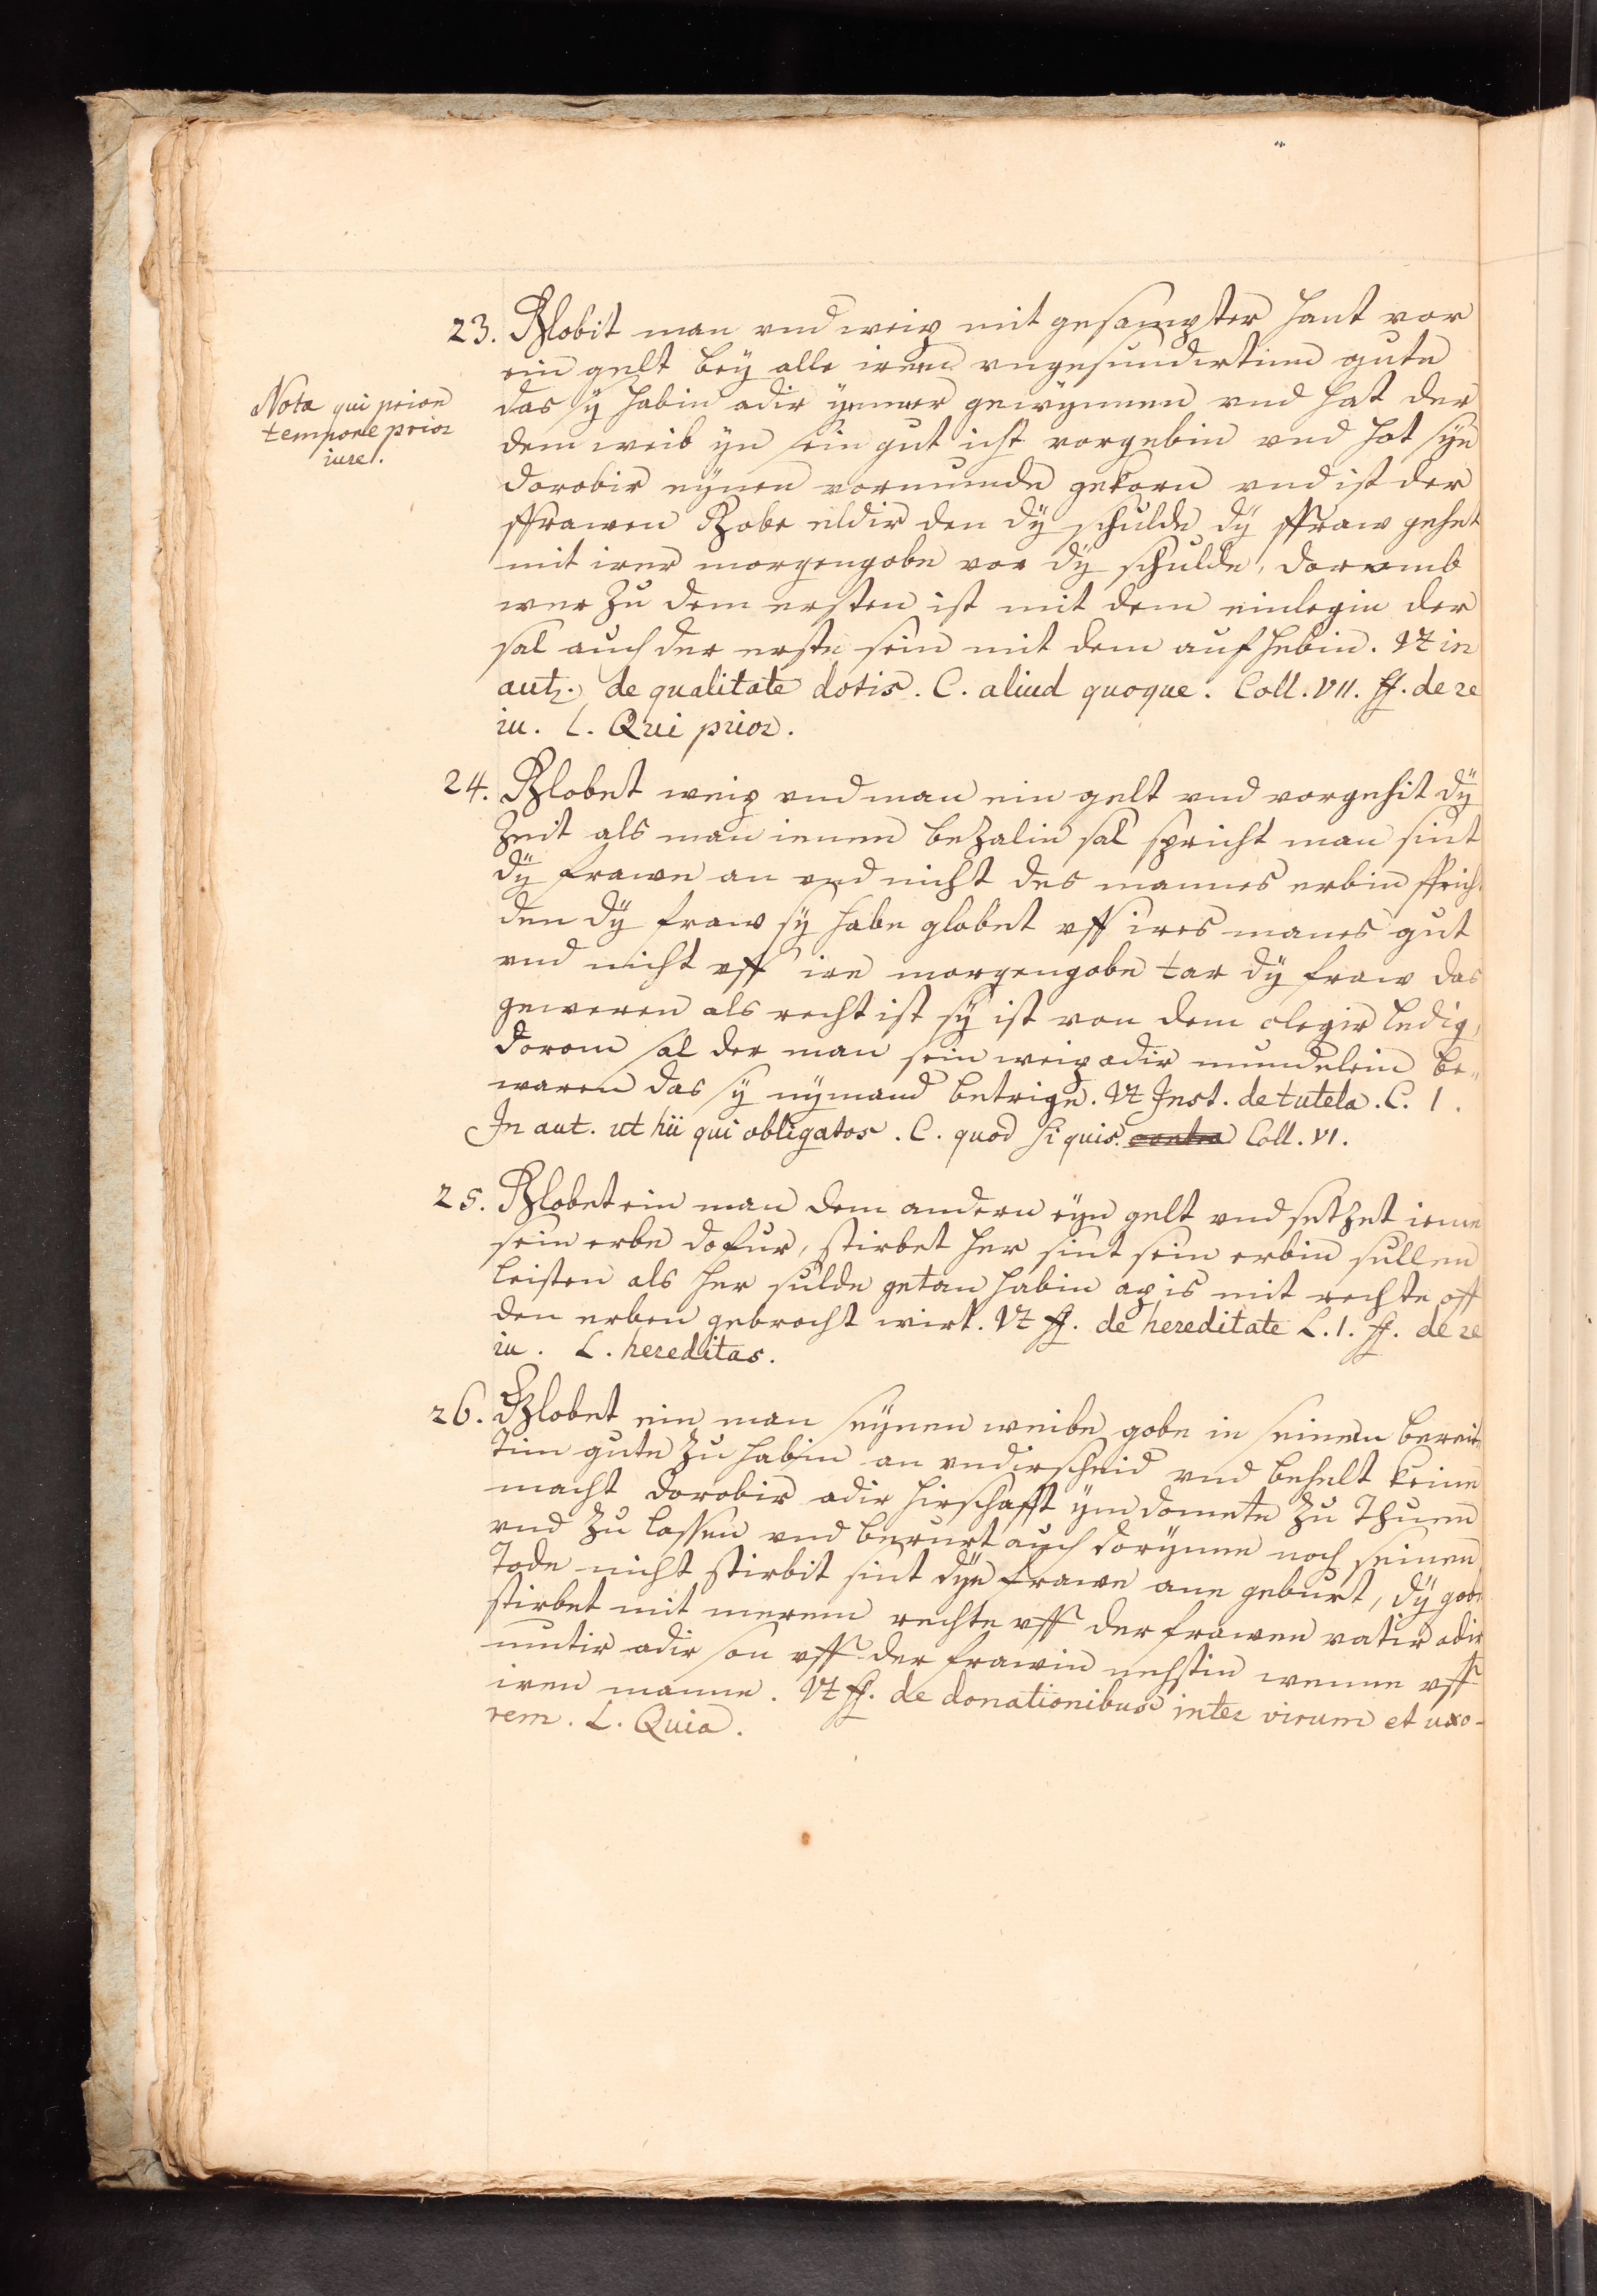 23. Globit man vnd weip mit gesampter hant vor
ein gelt bey alle irem vngesundirtim gute
Nota qui prior
tempore prior
iure.
das sÿ habin adir ÿmmer gewÿnnen vnd hat der
dem weib ÿn sein gut icht vorgebin vnd hot sÿe
dorobir eÿnen vormunde gekorn vnd ist der
ffrawen Gobe eldir den dÿ schulde dÿ ffraw gehet
mit irer morgengobe vor dÿ schulde, dorvmb
wer zu dem ersten ist mit dem einlegin der
sal auch der erste sein mit dem aufhebin. Vt in
aut. de qualitate dotis. C. aliud quoque. Coll. VII. ff. de re
iu. L. Qui prior.
24. Globet weip vnd man ein gelt vnd vorgehit dÿ
zeit als man ienem bezalin sal spricht man sint
dÿ frawe an vnd nicht des mannes erbin sprich
den dÿ fraw sÿ habe globet vff ires manes gut
vnd nicht vff ire morgengobe tar dÿ fraw das
geweren als recht ist sÿ ist von dem clegir ledig,
dorom sal der man sein weip adir mundelein be„
waren das sÿ nÿmand betrige. Vt Inst. de tutela. C. 1.
In aut. ut hii qui obligatos. C. quod si quis. contra Coll. VI.
25. Globet ein man dem andern eÿn gelt vnd setzet ieme
sein erbe dofur, stirbet her sint sein erbin sullen
leisten als her sulde getan habin ap is mit rechte off
den erben gebrocht wirt. Vt ff. de hereditate L. 1. ff. de re
iu. L. hereditas.
26. Globet ein man seÿnen weibe gobe in seinem bereit
tim gute zu habin an vndirscheid vnd behelt keine
macht dorobir adir hirschafft ÿm domete zu Thuen
vnd zu lassen vnd berurt auch dorÿnne noch seinen
Tode nicht stirbit sint dÿe frawe ane geburt, dÿ gobe
stirbet mit merem rechte vff der frawen vatir adir
mutir adir son vff der frawin nehstin wenne vff
iren manne. Vt ff. de donationibus inter virum et uxo-
rem. L. Quia.